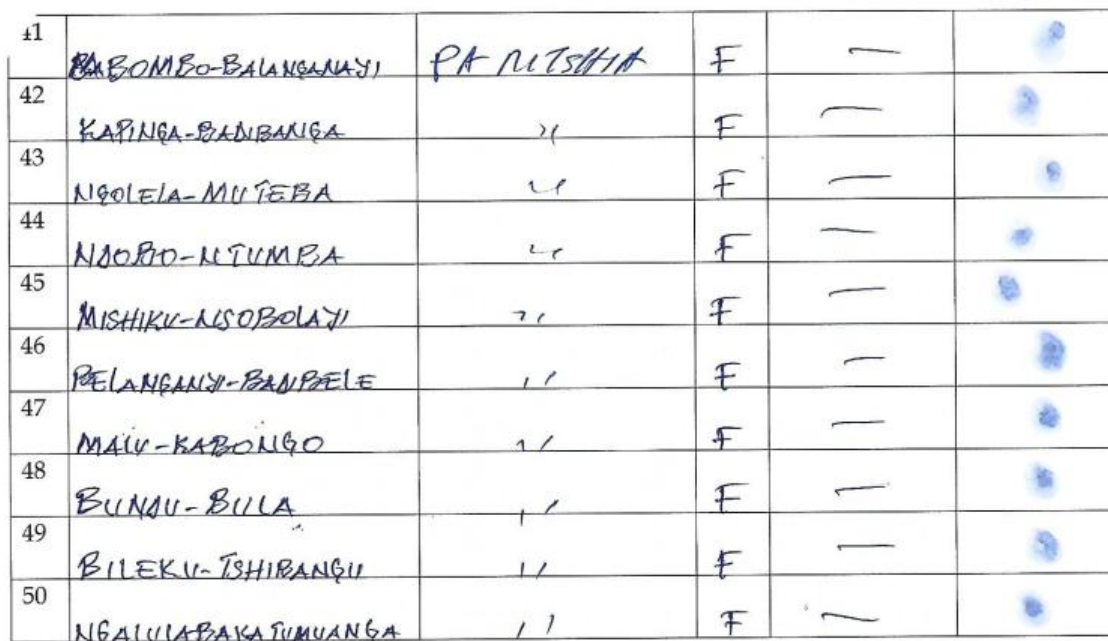 41 BABOMBO-BALANGANAYI PA NTSHIA F —
42 KAPINGA-BANBANGA " F —
43 NGOLELA-MUTEBA " F —
44 NDOBO-NTUMBA " F —
45 MISHIKU-NSOBOLAYI " F —
46 BELANGANYI-BANBELE " F —
47 MAIU-KABONGO " F —
48 BUNDU-BULA " F —
49 BILEKU-TSHIBANGU " F —
50 NGALULABAKATUMUANGA " F —